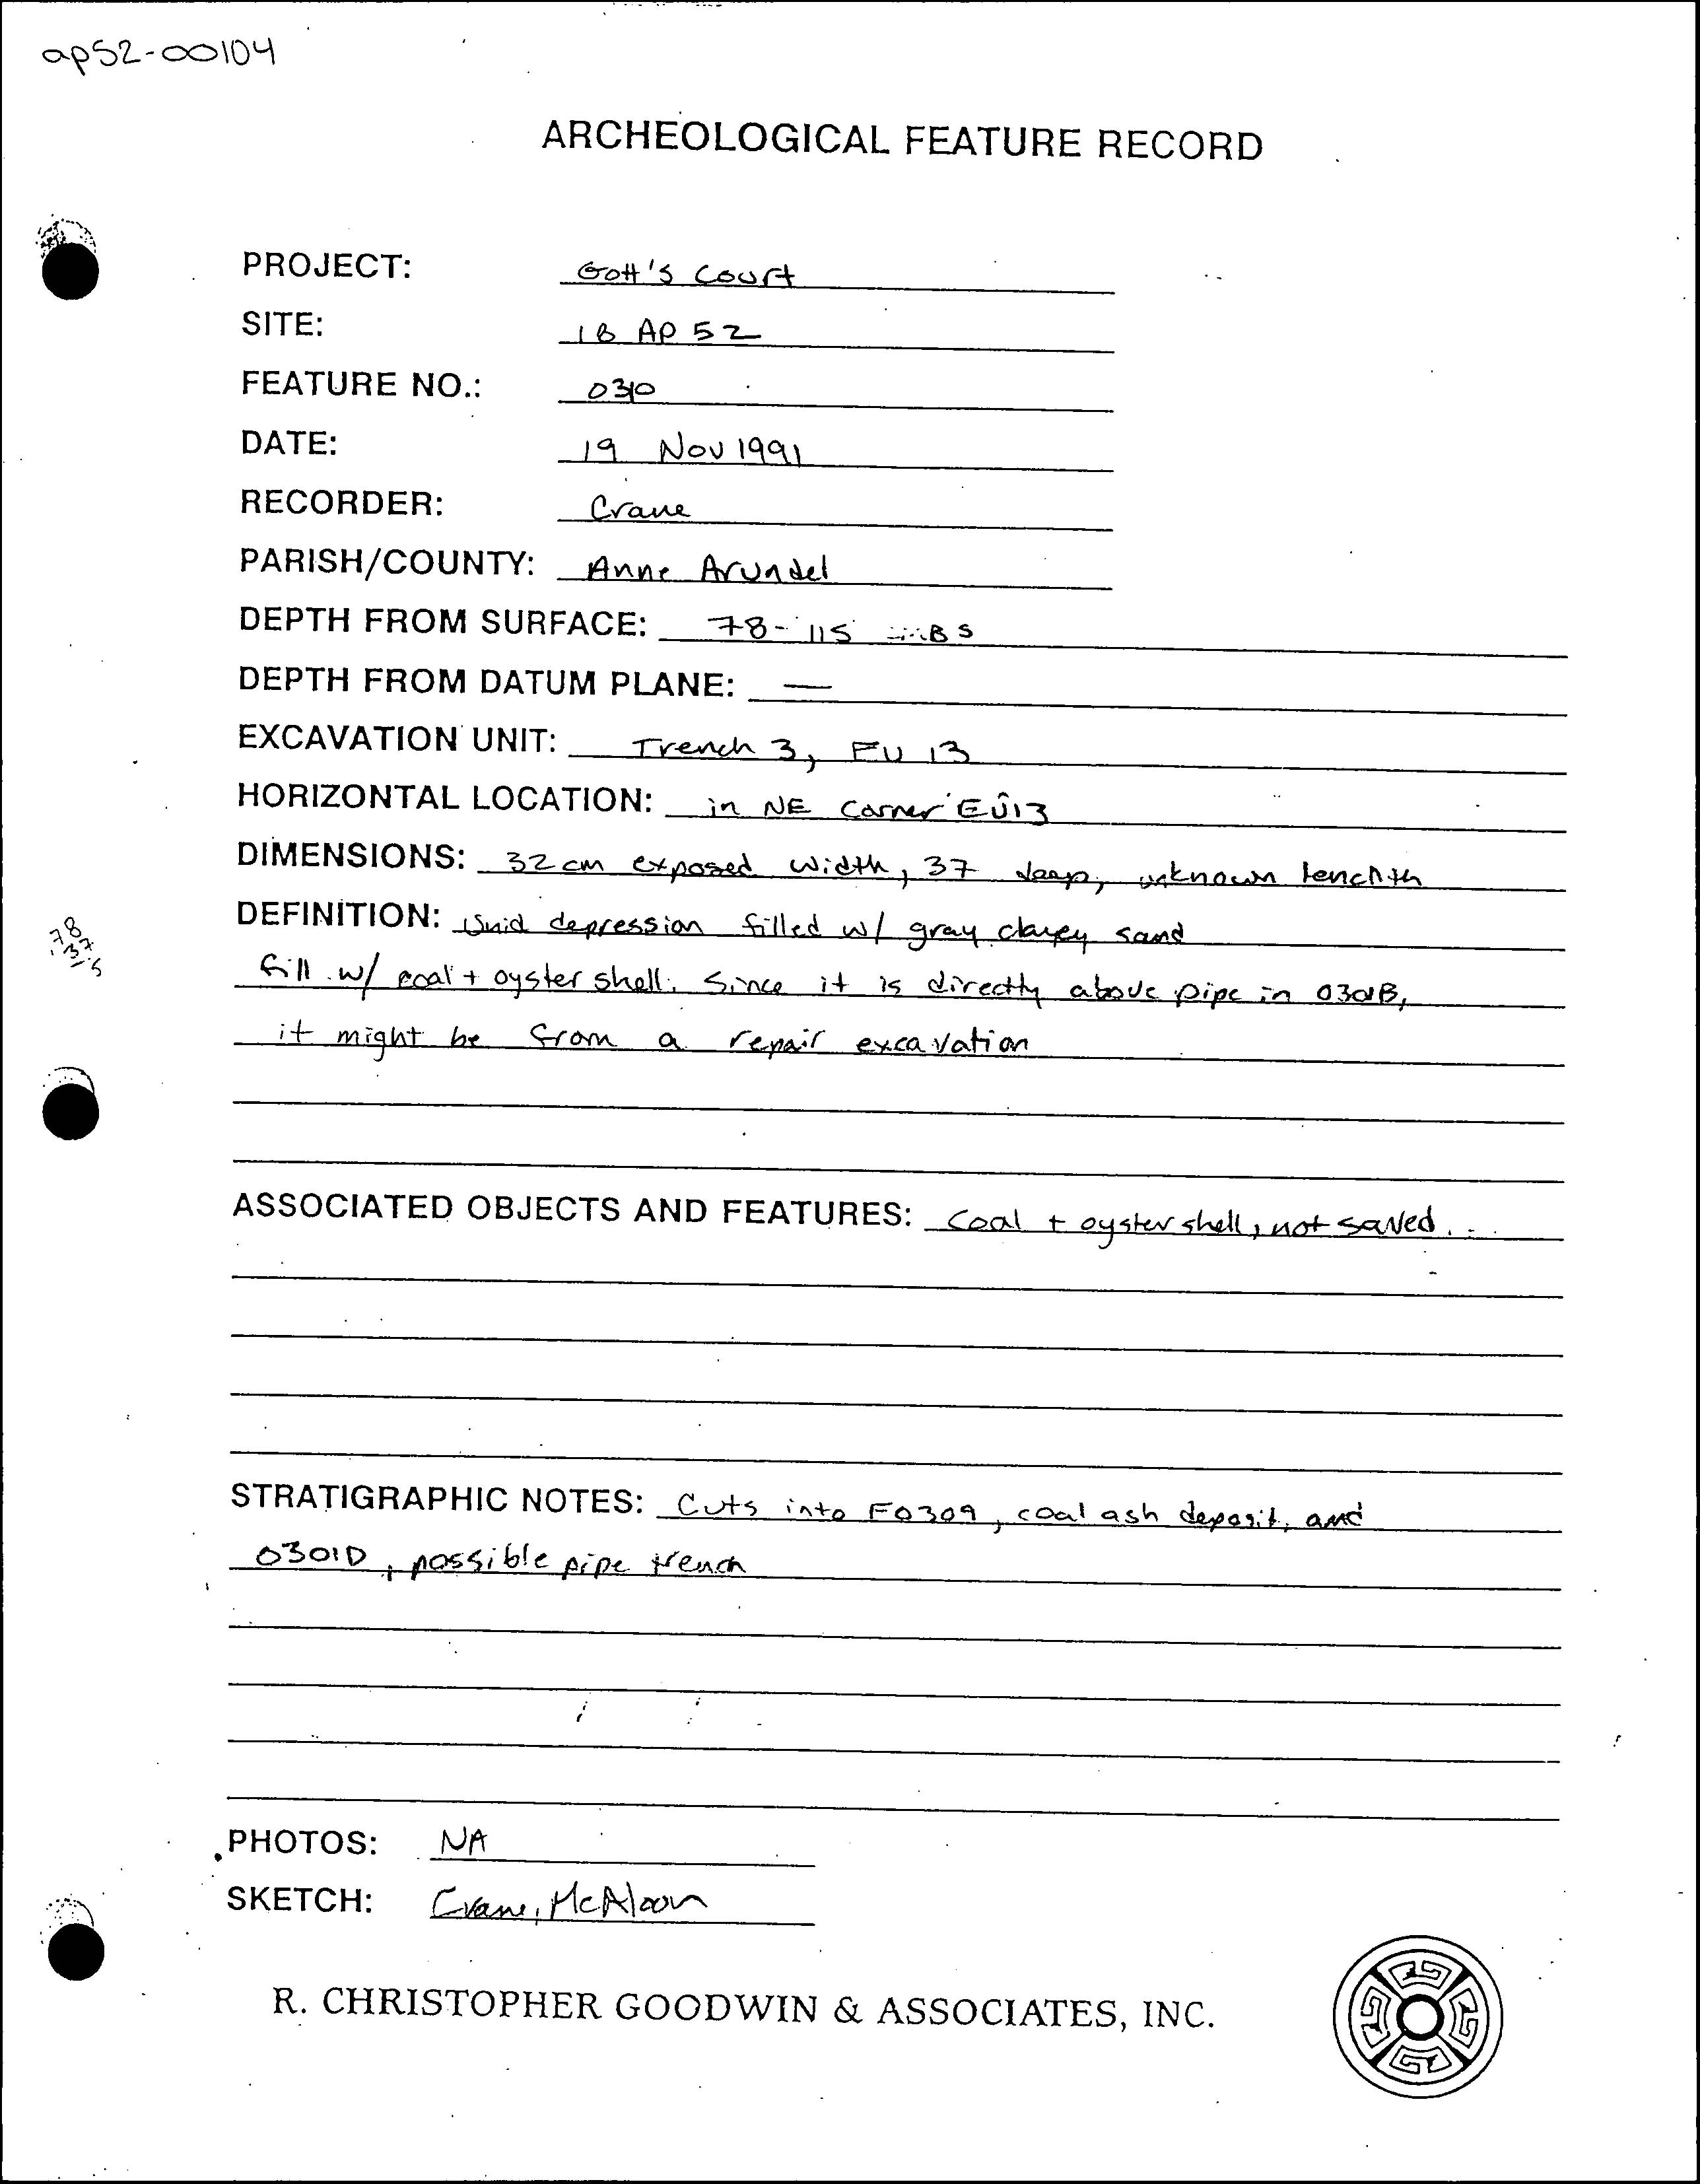 ap52-00104
ARCHEOLOGICAL FEATURE RECORD
PROJECT: Gott's Court
SITE: 18 AP 52
FEATURE NO.: 0310
DATE: 19 Nov 1991
RECORDER: Crane
PARISH/COUNTY: Anne Arundel
DEPTH FROM SURFACE: 78-115 BS
DEPTH FROM DATUM PLANE: —
EXCAVATION UNIT: Trench 3, EU 13
HORIZONTAL LOCATION: in NE Corner EU13
DIMENSIONS: 32 cm exposed width, 37 deep, unknown length
DEFINITION: Unid depression filled w/ gray clayey sand
fill w/ coal + oyster shell. Since it is directly above pipe in
it might be from a repair excavation
78
37
ASSOCIATED OBJECTS AND FEATURES: Coal + oyster shell, not saved.
STRATIGRAPHIC NOTES: Cuts into F0309, coal ash deposit, and
0301D, possible pipe trench
PHOTOS: NA
SKETCH: Crane, McAloon
R. CHRISTOPHER GOODWIN & ASSOCIATES, INC.